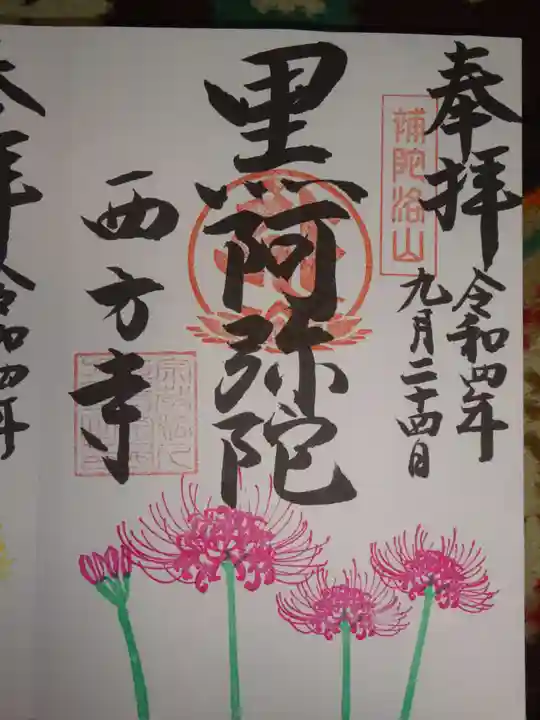 奉拝
補陀洛山
令和四年
九月二十四日
黒阿弥陀
西方寺
奉拝
令和四年